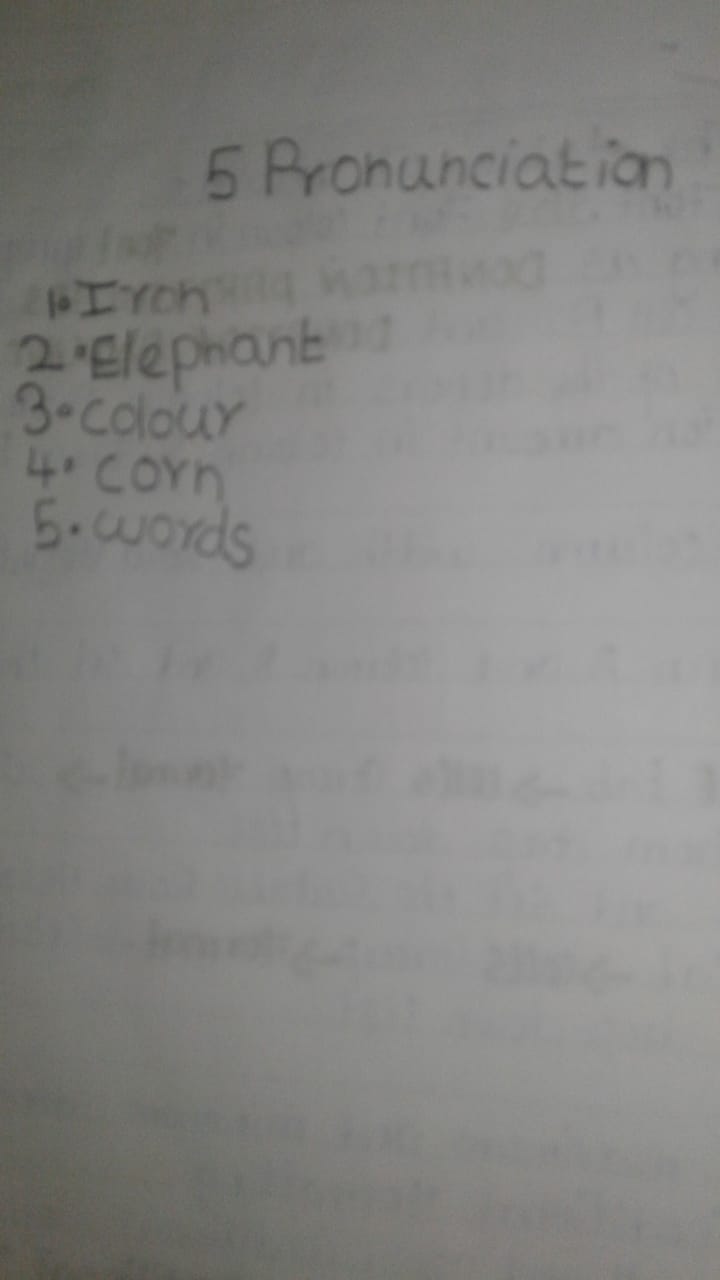 5 Pronunciation
1. Iron
2. Elephant
3. colour
4. corn
5. words